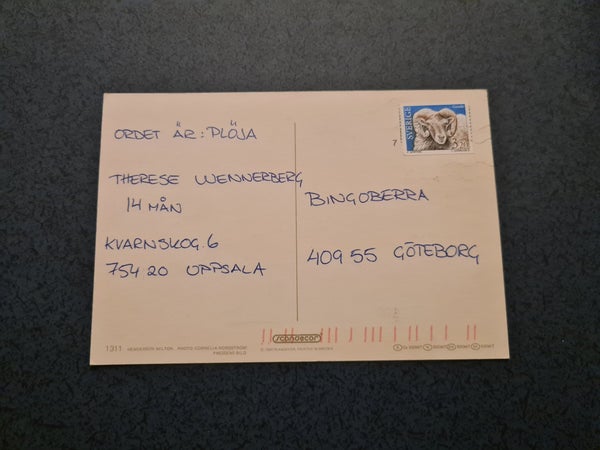 ORDET ÄR: PLÖJA
THERESE WENNERBERG
14 MÅN
KVARNSKOG. 6
754 20 UPPSALA
SVERIGE
3.20
7
BINGOBERRA
409 55 GÖTEBORG
1311 HENDERSON MILTON. PHOTO CORNELIA NORDSTRÖM
PRESSENS BILD
scandecor